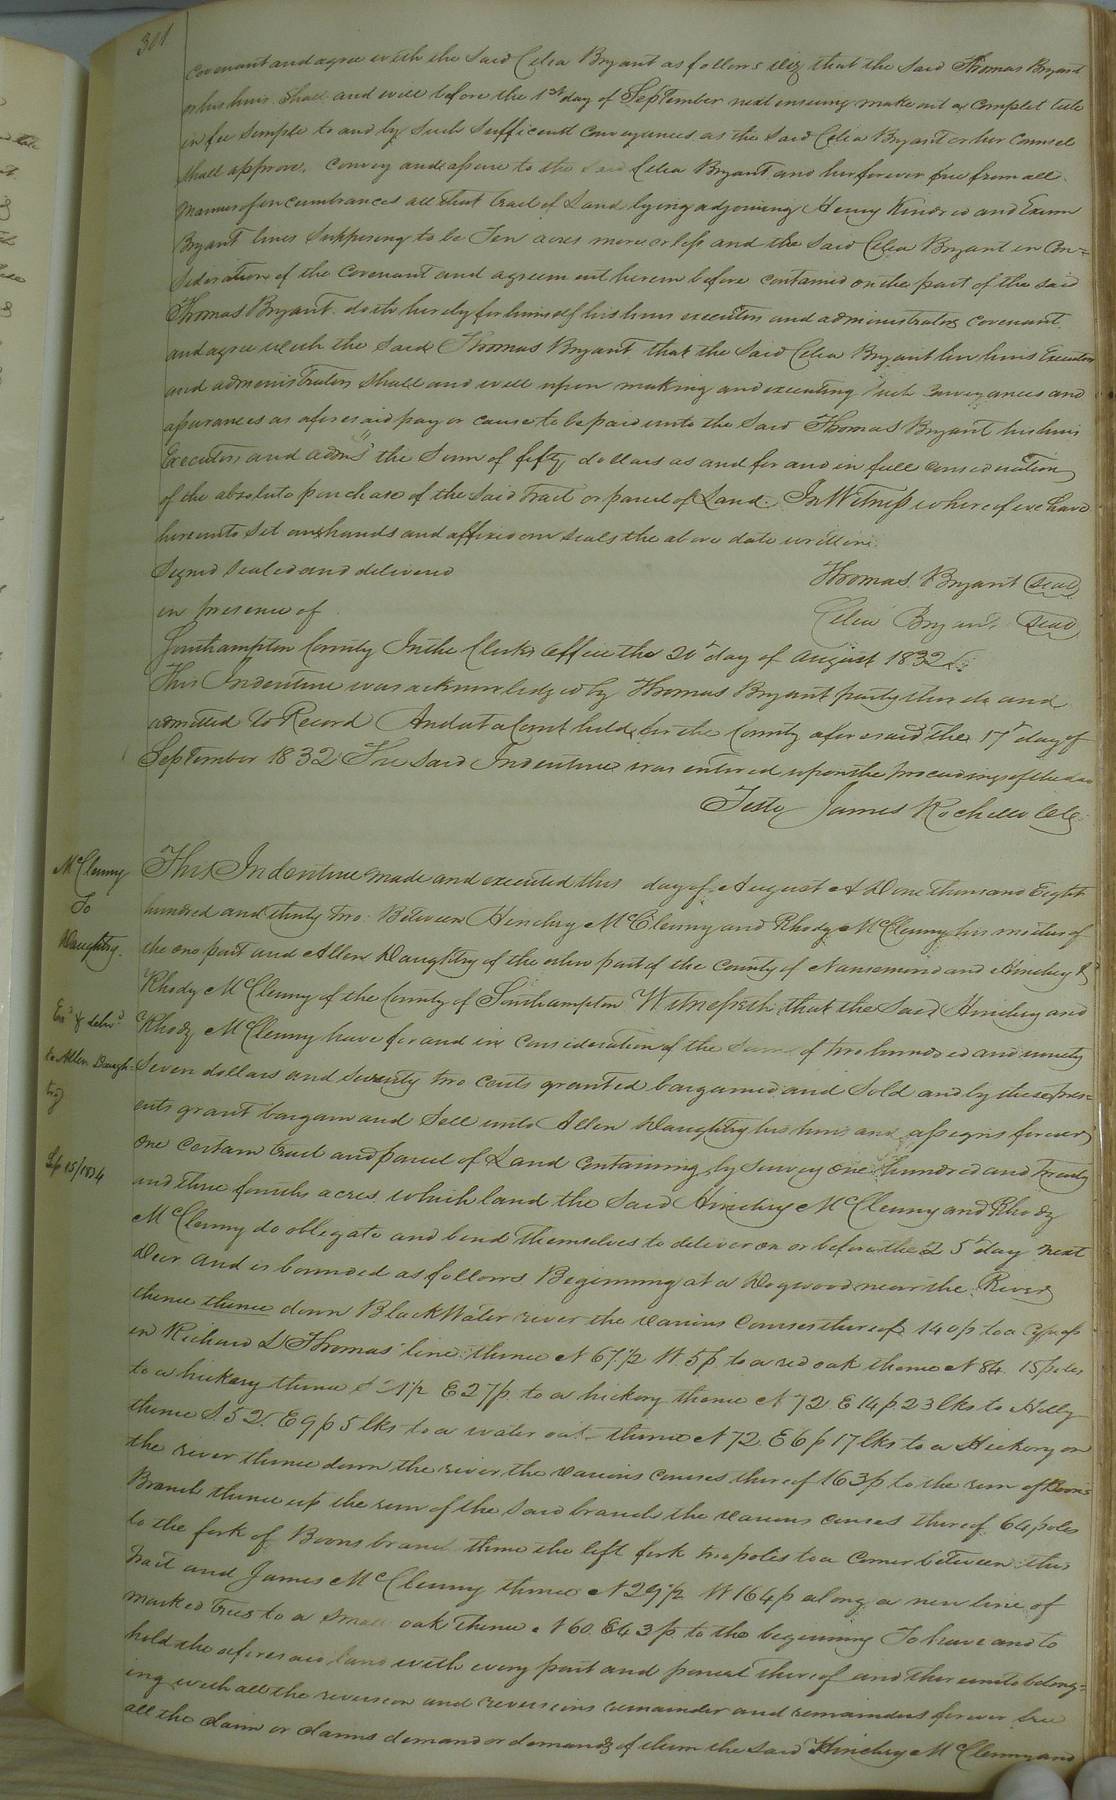 301
covenant and agree with the said Celia Bryant as follows Viz that the said Thomas Bryant
or his heirs Shall and will before the 1st day of September next ensuing make out a Complet title
in fee Simple to and by Such Sufficient Conveyances as the Said Celia Bryant or her Counsel
Shall approve. Convey and assure to the said Celia Bryant and her forever free from all
manner of incumbrances all that tract of Land lying adjoining Henry Kindred and Exum
Bryant lines Supposing to be Ten acres more or less and the Said Celia Bryant in Con=
sideration of the Covenant and agreement herein before contained on the part of the said
Thomas Bryant doth hereby for himself his heirs executors and administrators covenant
and agree with the Said Thomas Bryant that the Said Celia Bryant her heirs Executors
and administrators Shall and will upon making and executing Such Conveyances and
assurances as aforesaid pay or cause to be paid unto the Said Thomas Bryant his heirs
Executors and adms the Sum of fifty dollars as and for and in full consideration
of the absolute purchase of the Said Tract or parcel of Land. In Witness whereof we have
hereunto Set our hands and affixed our Seals the above date written.
Signd Sealed and delivered
Thomas Bryant Seal
in presence of
Celia Bryant Seal
Southampton County In the Clerks Office the 20th day of August 1832
This Indenture was acknowledged by Thomas Bryant party thereto and
admitted to Record And at a Court held for the County aforesaid the 17th day of
September 1832 The Said Indenture was entered upon the proceedings of the
Teste James Rochelle
McClenny
To
Daughtry.
Exd & delvd
to Allen Daugh-
try
Sep 15/1834
This Indenture made and executed this day of August A D one thousand Eight
hundred and thirty two. Between Hinchey McClenny and Rhody McClenny his of
the one part and Allen Daughtry of the other part of the County of Nansemond and Hinchey &
Rhody McClenny of the County of Southampton Witnesseth that the Said Hinchey and
Rhody McClenny have for and in Consideration of the Sum of two hundred and ninety
Seven dollars and Seventy two Cents granted bargained and Sold and by these pres-
ents grant bargain and Sell unto Allen Daughtry his heirs and assigns forever
one certain tract and parcel of Land Containing by Survey one hundred and Twenty
and three fourths acres which land the Said Hinchey McClenny and Rhody
McClenny do obligate and bind themselves to deliver on or before the 25th day next
Decr and is bounded as follows Beginning at a Dogwood near the River
thence thence down Black Water river the various Courses thereof 140 p to a Cypress
in Richard D Thomas' line thence N 67 1/2 W. 5 p. to a red oak thence N 84 15 poles
to a hickory thence S 21 1/2 E 27 p. to a hickory thence N 72 E 14 p 23 lks to Holly
thence S. 52. E 9 p 5 lks to a water oak thence N 72. E 6 p 17 lks to a Hickory on
the river thence down the river the various courses thereof 163 p to the run of Boons
Branch thence up the run of the Said branch the various courses thereof 64 poles
to the fork of Boons branch thence the left fork poles to a corner between this
tract and James McClenny thence N 29 1/2 W 164 p along a new line of
marked trees to a Small oak Thence N 60. E 43 p to the beginning To have and to
hold the aforesaid land with every part and parcel thereof and thereunto belong=
ing with all the reversion and reversions remainder and remainders forever free
all the claim or claims demand or demands of them the Said Hinchey McClenny and